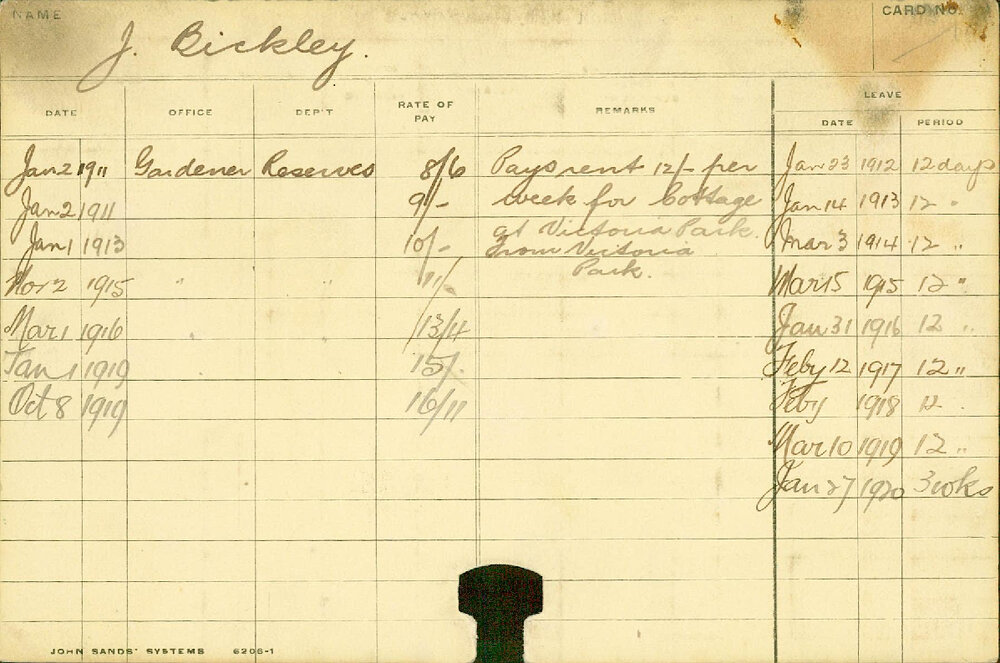 NAME
CARD NO.
J. Bickley.
DATE OFFICE DEP'T RATE OF PAY REMARKS LEAVE
DATE PERIOD
Jan 2 1911 Gardener Reserves 8/6 Pays rent 12/- per Jan 23 1912 12 days
Jan 2 1911 9/- week for Cottage Jan 14 1913 12 "
Jan 1 1913 10/- at Victoria Park. Mar 3 1914 12 "
From Victoria
Park.
Nov 2 1915 " " 11/- Mar 15 1915 12 "
Mar 1 1916 13/4 Jan 31 1916 12 "
Jan 1 1919 15/- Feby 12 1917 12 "
Oct 8 1919 16/11 Feby 1918 12 "
Mar 10 1919 12 "
Jan 27 1920 3 wks
JOHN SANDS' SYSTEMS 6206-1